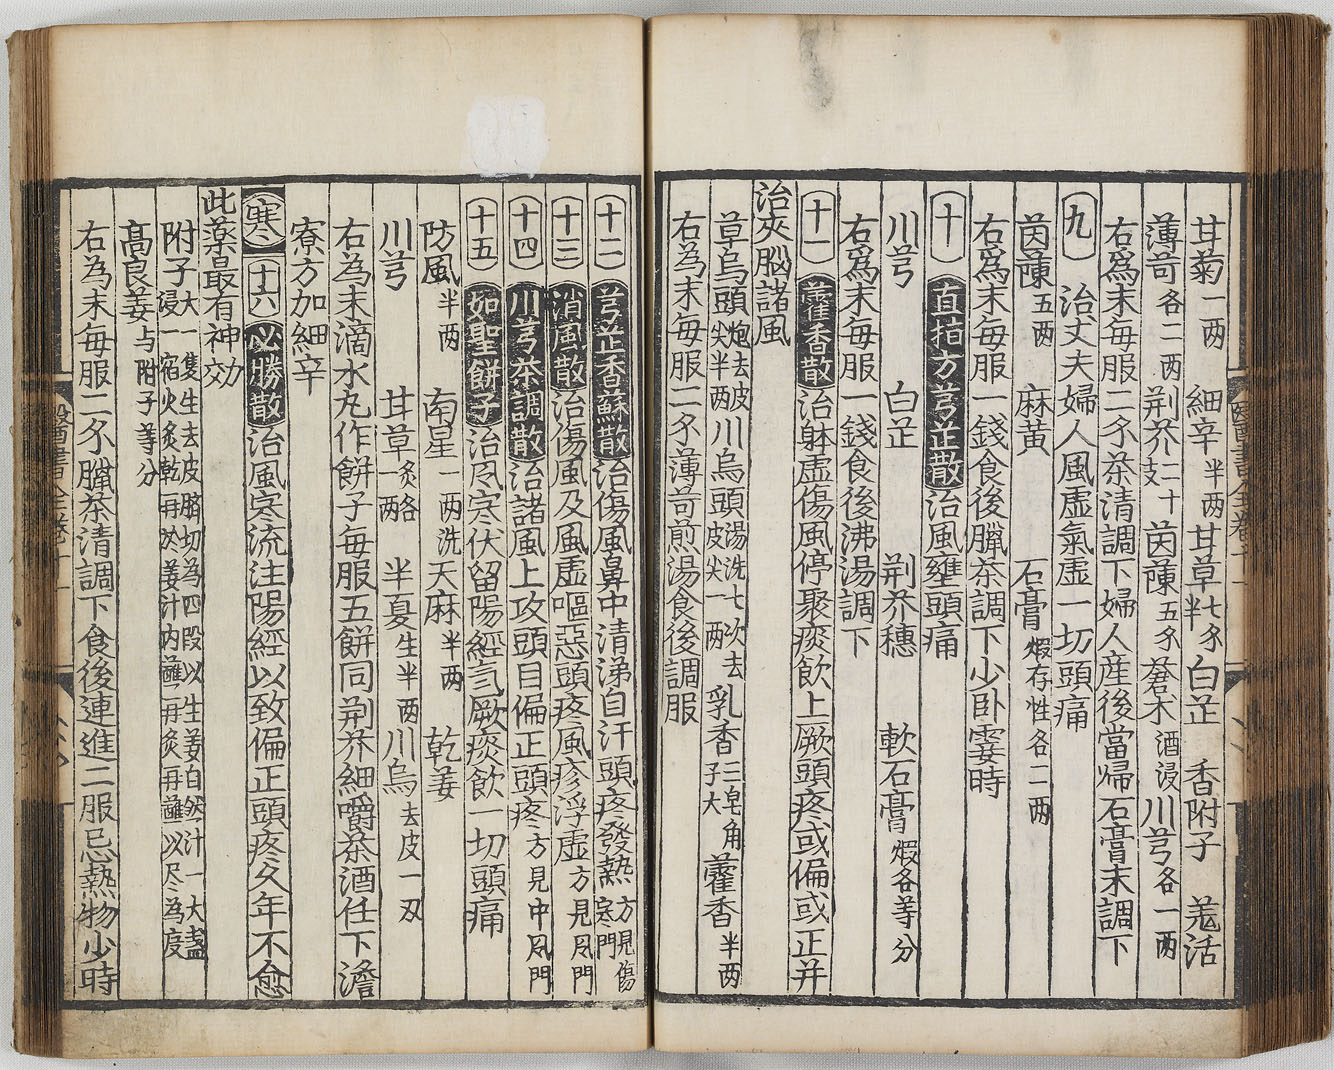 甘菊一两 細辛半两 甘草七分半 白芷 香附子 羗活
薄苛各二两 荆芥二十支 茵蔯五分 蒼术酒浸 川芎各一两
右爲末每服二分茶清調下婦人産後當㱕石膏末調下
九 治丈夫婦人風虚氣虚一切頭痛
茵蔯五两 麻黄 石膏煆存性各二两
右爲末每服一錢食後臘茶調下少卧霎時
十 直指方芎芷散治風壅頭痛
川芎 白芷 荆芥穗 軟石膏煆各等分
右爲末每服一錢食後沸湯調下
十一 藿香散治躰虚傷風停聚痰飲上厥頭疼或偏或正并
治夾腦諸風
草烏頭炮去皮尖半两 川烏頭湯洗七次去皮尖一两 乳香三皂角子大 藿香半两
右為末每服二分薄苛煎湯食後調服
十二 芎芷香蘇散治傷風鼻中清涕自汗頭疼發熱方見傷寒門
十三 消風散治傷風及風虚嘔惡頭疼風疹浮虚方見风門
十四 川芎茶調散治諸風上攻頭目偏正頭疼方見中风門
十五 如聖餅子治风寒伏留陽經氣厥痰飲一切頭痛
防風半两 南星一两洗 天麻半两 乾姜
川芎 甘草炙各一两 半夏生半两 川烏去皮一双
右為末滴水丸作餅子每服五餅同荆芥細嚼茶酒任下澹
寮方加細辛
寒 十六 必勝散治風寒流注陽經以致偏正頭疼久年不愈
此藥最有神効
附子大一隻生去皮臍切為四段以生姜自然汁一大盞浸一宿火炙乾再於姜汁内蘸再炙再蘸以尽為度
高良姜与附子等分
右為末每服二分臘茶清調下食後連進二服忌熱物少時
醫書全卷十一